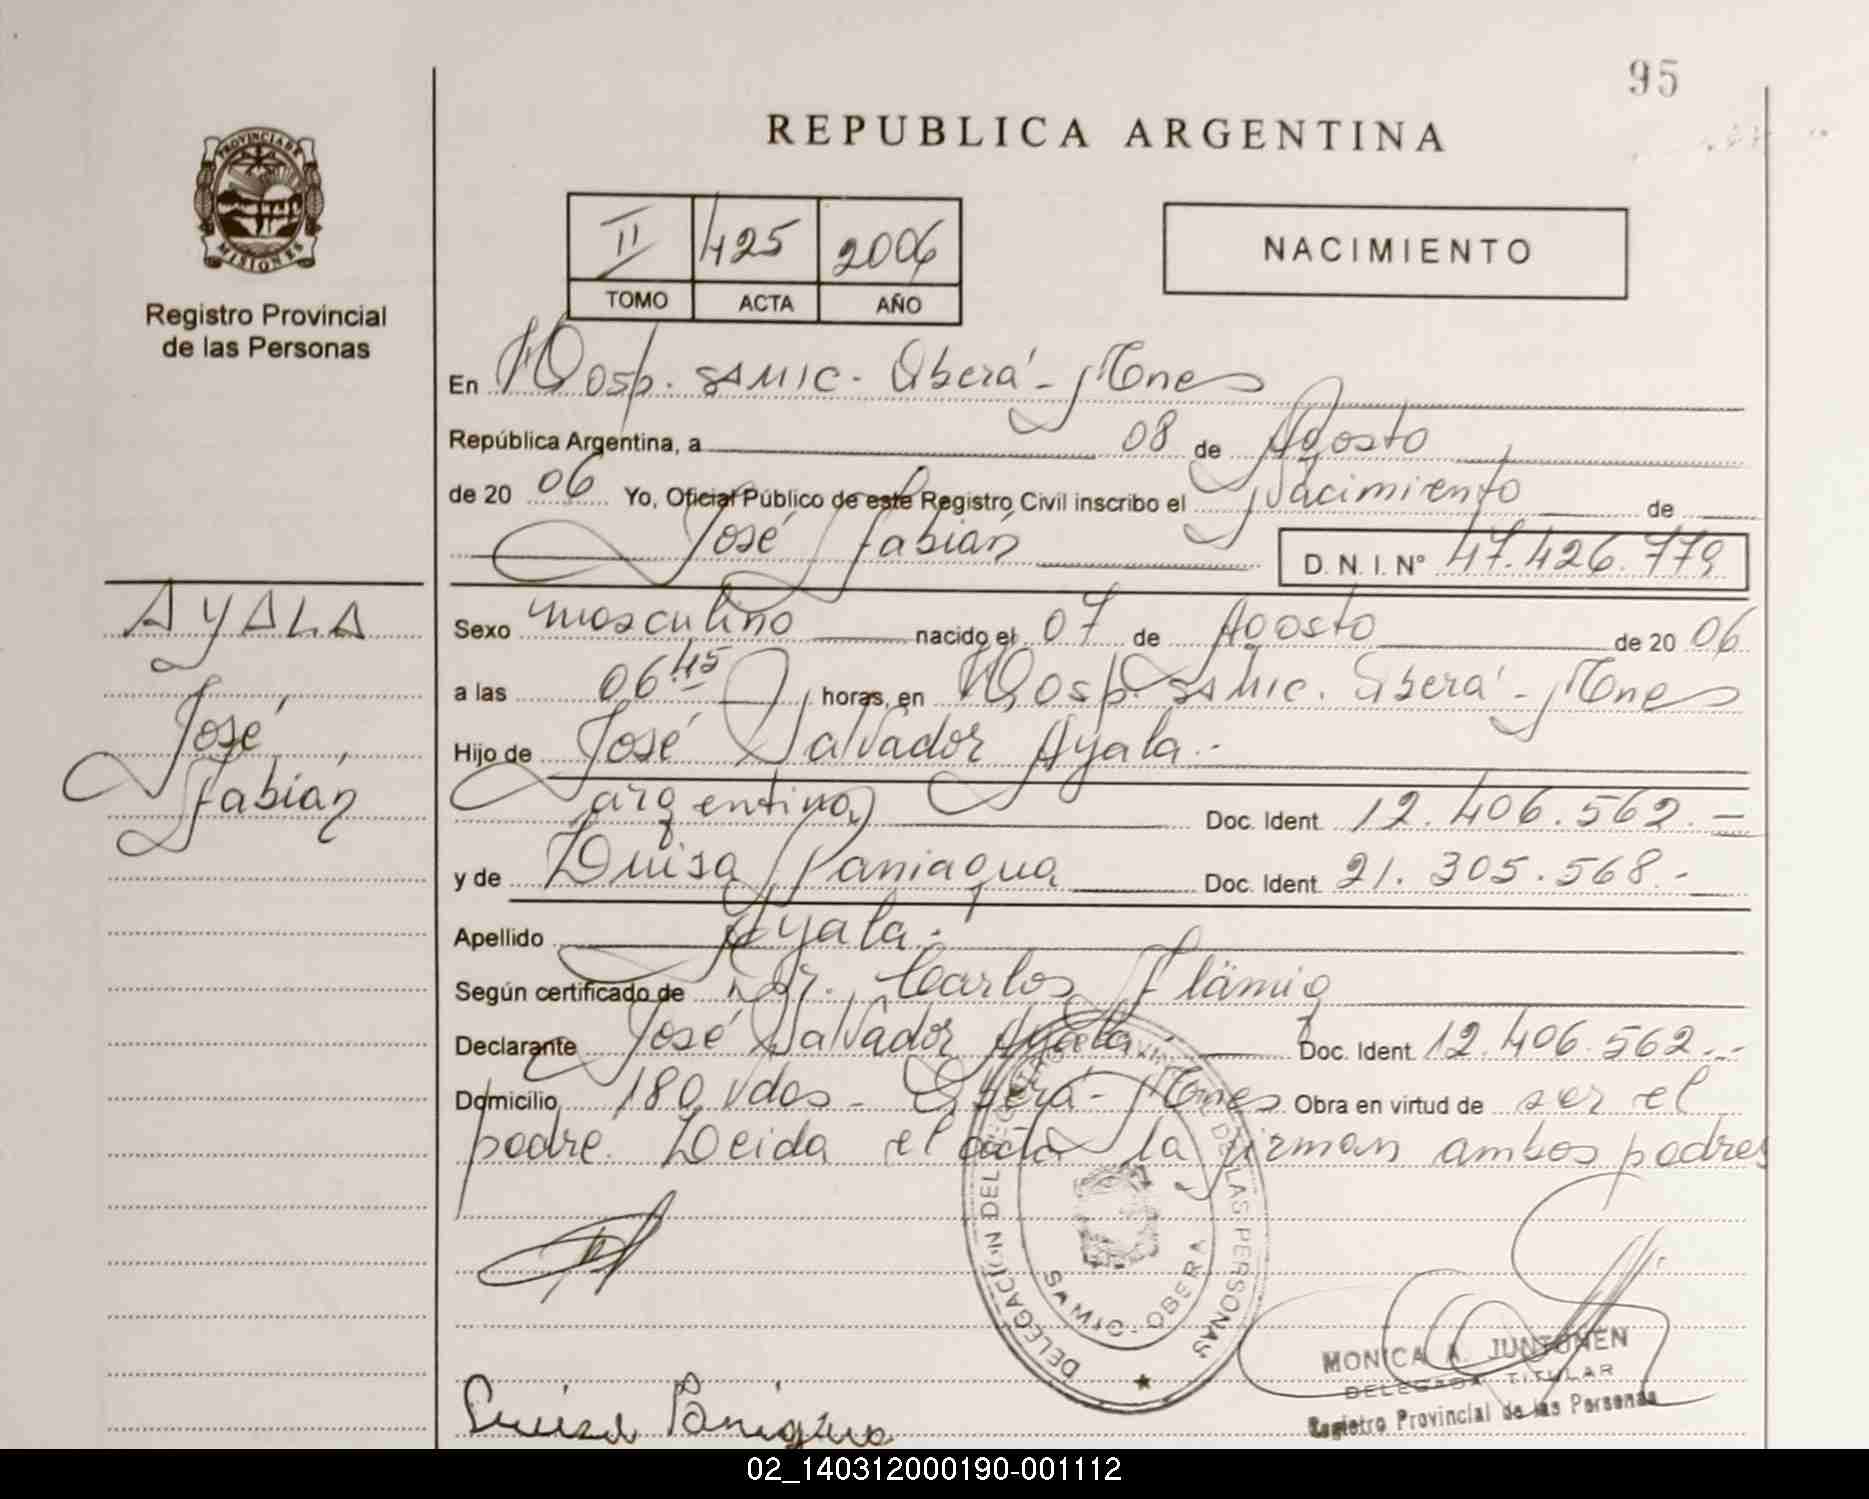 95
REPUBLICA ARGENTINA
PROVINCIA DE
MISIONES
Registro Provincial
de las Personas
II 425 2006
TOMO ACTA AÑO
NACIMIENTO
En Hosp. SAMIC. Oberá - Mnes
República Argentina, a 08 de Agosto
de 20 06 Yo, Oficial Público de este Registro Civil inscribo el Nacimiento de
José Fabián D. N. I. Nº 47.426.779
AYALA
José
Fabián
Sexo masculino nacido el 07 de Agosto de 20 06
a las 06:45 horas, en Hosp. SAMIC. Oberá - Mnes
Hijo de José Salvador Ayala.-
argentino Doc. Ident. 12.406.562.-
y de Luisa Paniagua Doc. Ident. 21.305.568.-
Apellido Ayala.-
Según certificado de Dr. Carlos Flämig
Declarante José Salvador Ayala Doc. Ident. 12.406.562.-
Domicilio 180 Vdas - Oberá - Mnes Obra en virtud de ser el
padre. Leida el acta la firman ambos padres
DELEGACIÓN DEL REGISTRO PROVINCIAL DE LAS PERSONAS
SAMIC - OBERA
MONICA A. JUNTONEN
DELEGADA TITULAR
Registro Provincial de las Personas
Luisa Paniagua
02_140312000190-001112